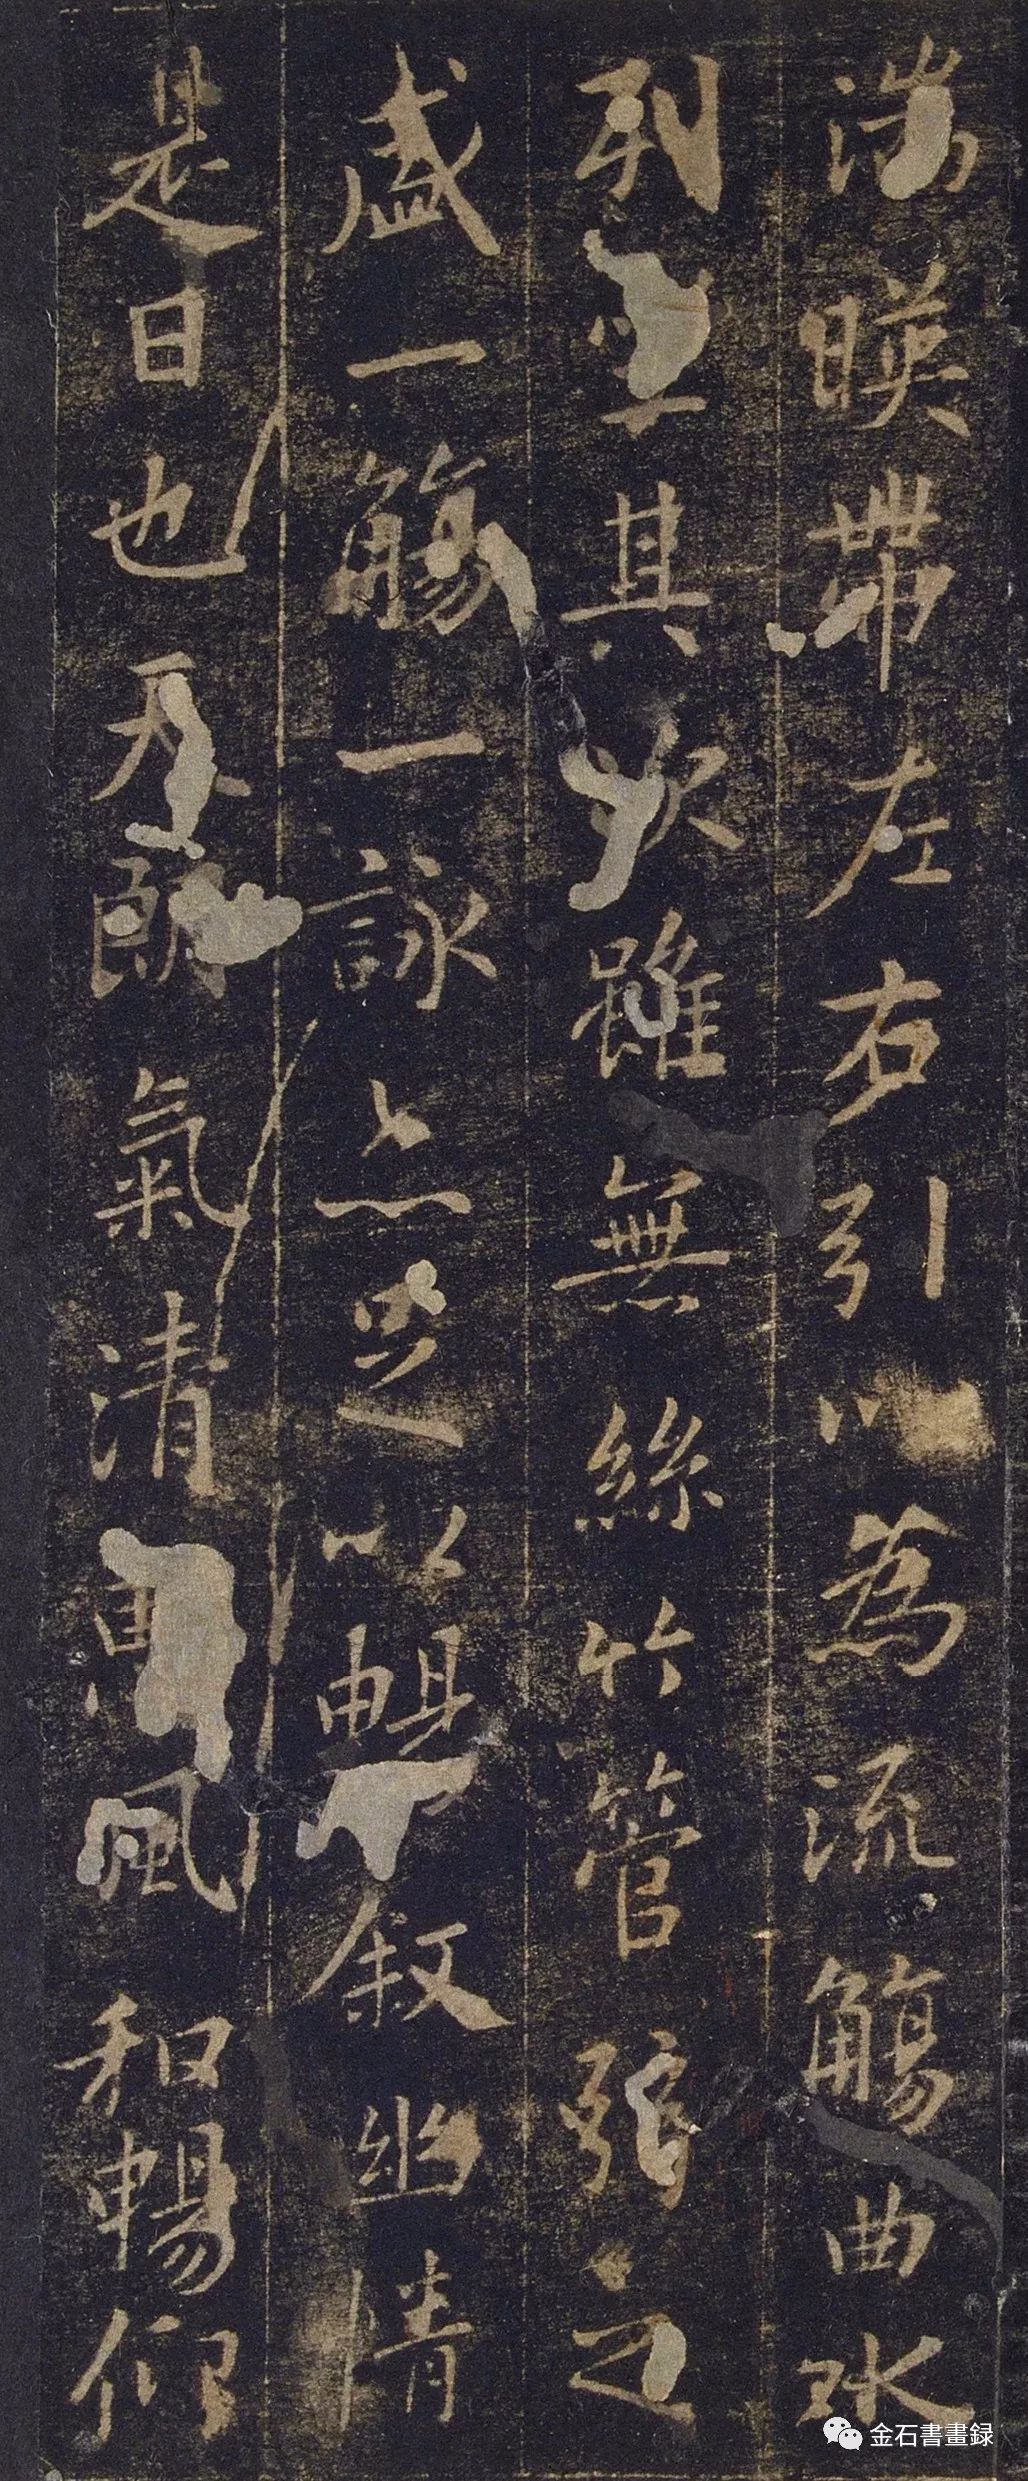 湍暎帶左右引以為流觴曲水
列坐其次雖無絲竹管弦之
盛一觴一詠亦足以暢敘幽情
是日也天朗氣清惠風和暢仰
金石書畫録